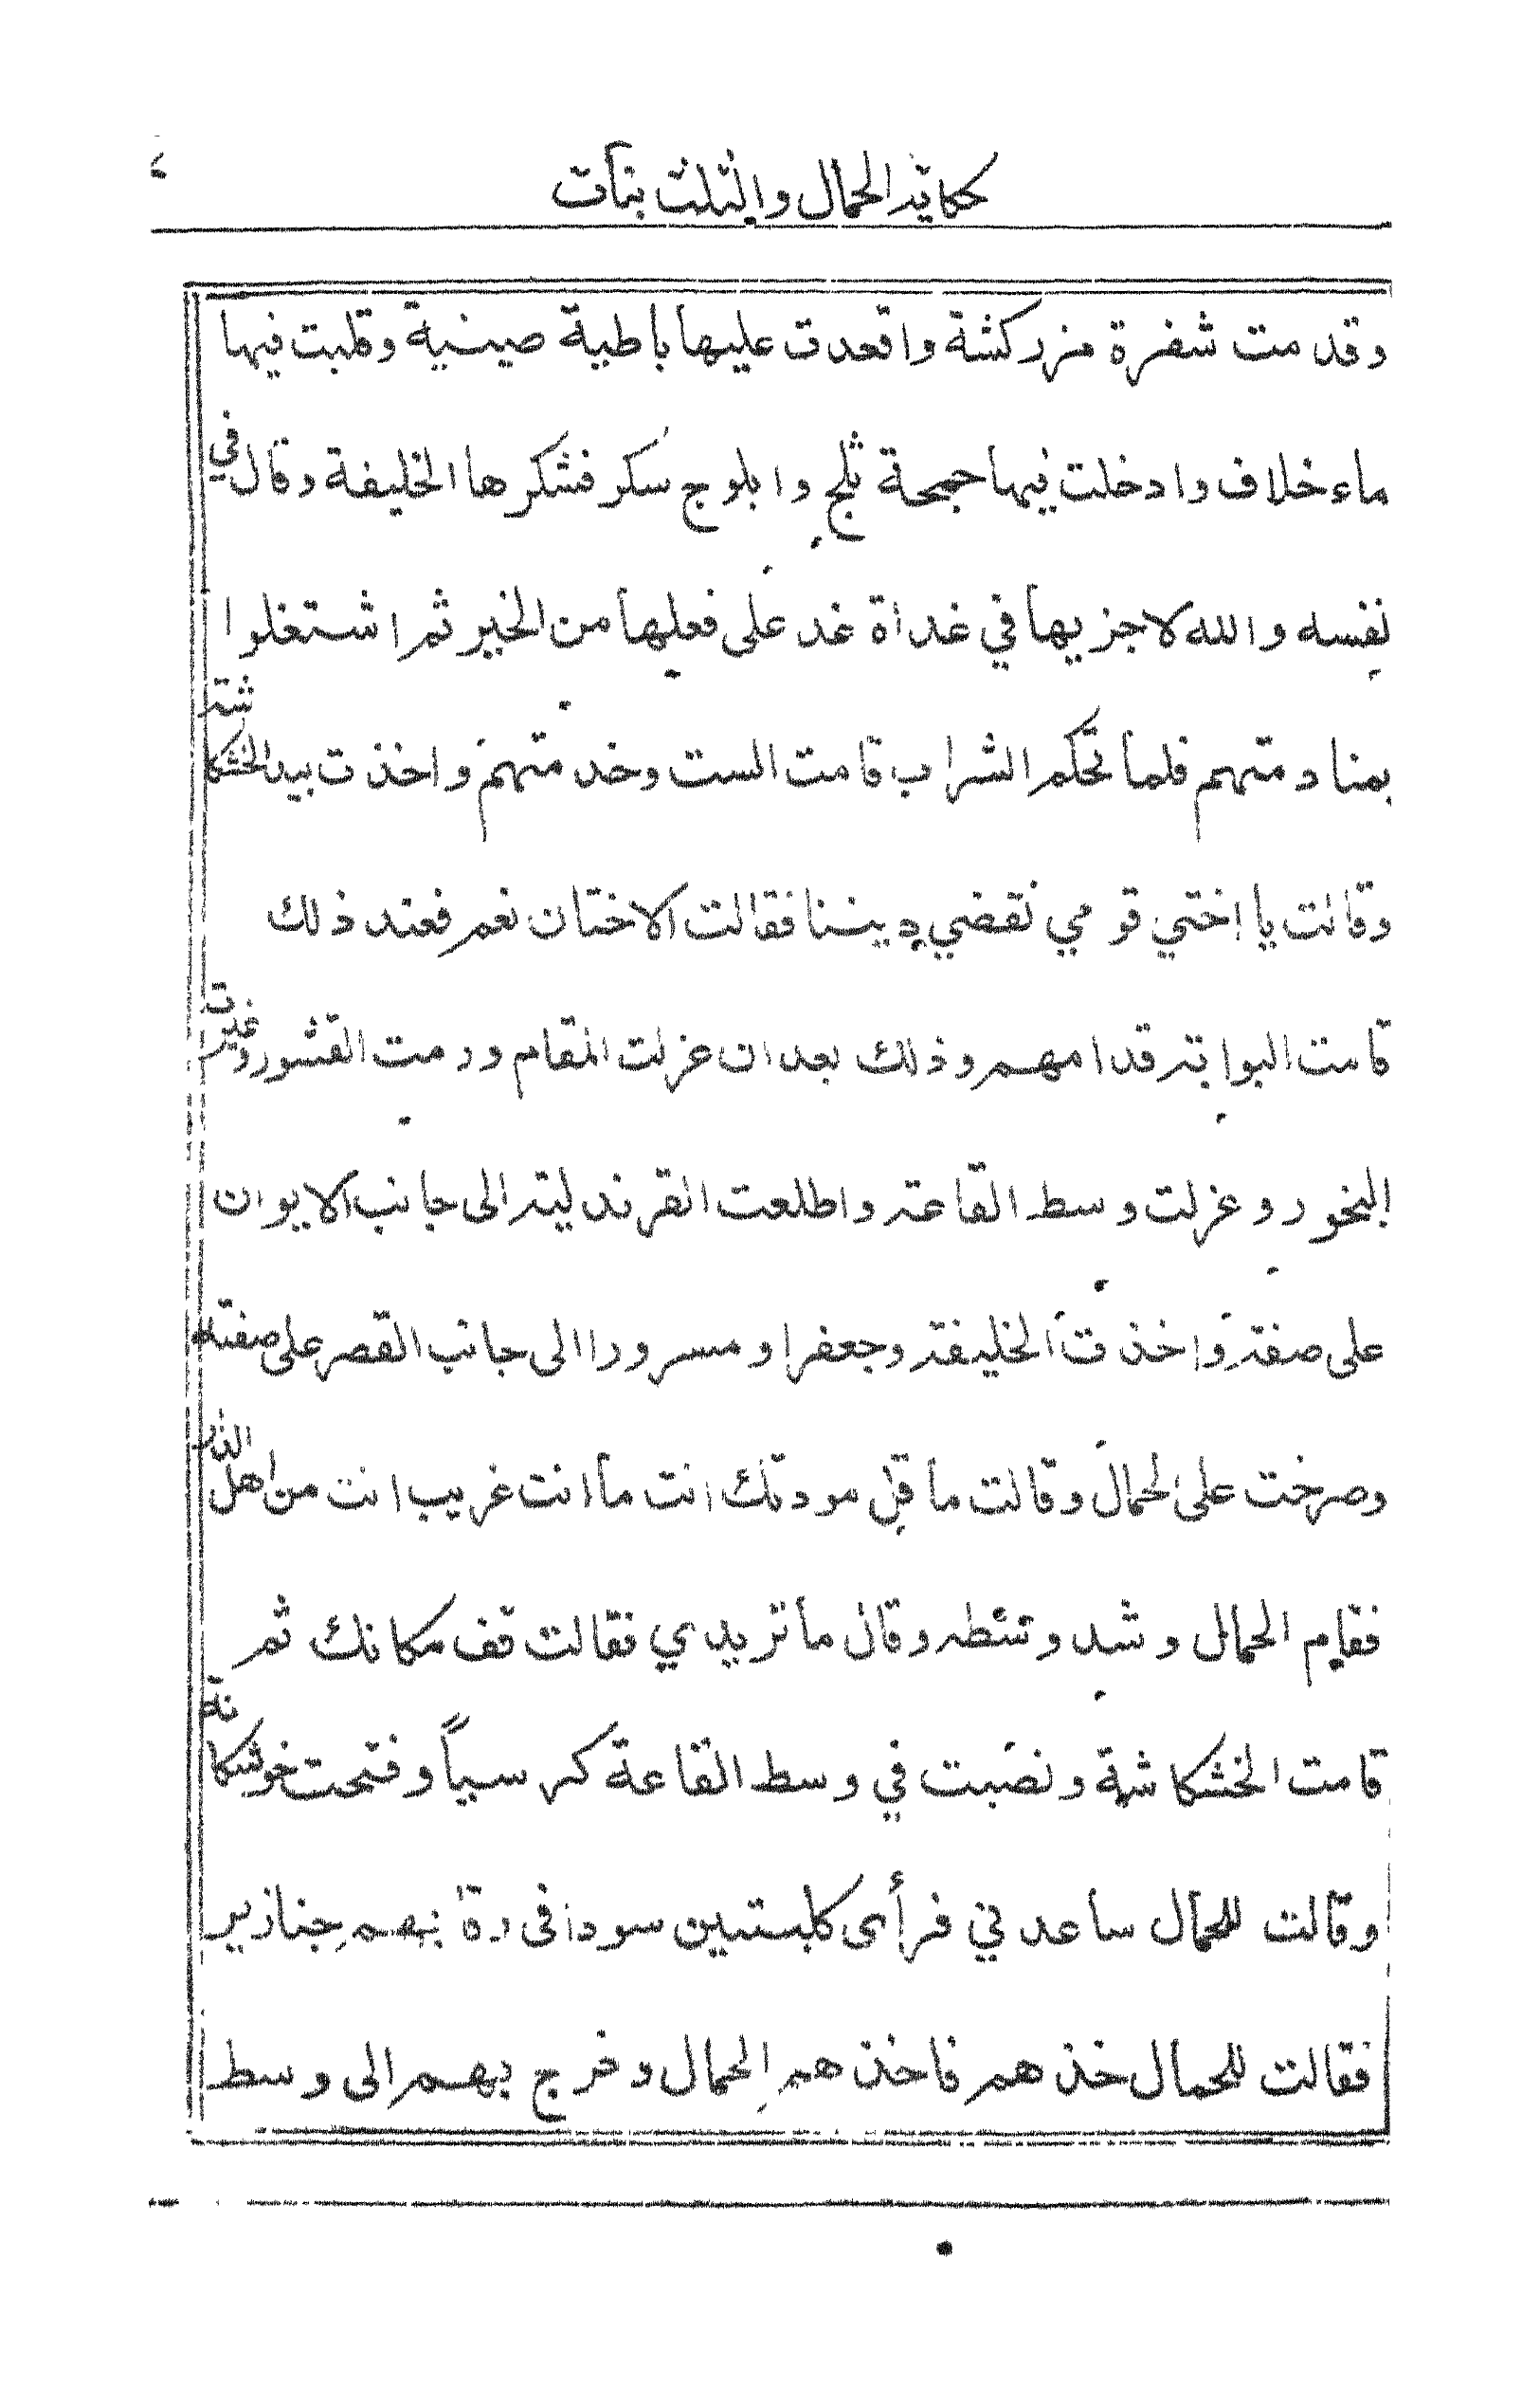 حكاية الحمال والثلث بنات
وقدمت شفرة مزركشة واقعدت عليها باطية صينية وقلبت فيها
ماء خلاف وادخلت فيها حمجمة ثلج وابلوج سكر فشكرها الخليفة وقال في
نفسه والله لاجزيها في غداة غد على فعلها من الخير ثم اشتغلوا
بمنادمتهم فلما تحكم الشراب قامت الست وخدمتهم واخذت بيد الخشكاشته
وقالت يا اختي قومي نقضي ديننا فقالت الاختان نعم فعند ذلك
قامت البوابة قدامهم وذلك بعد ان عزلت المقام ورمت القشور وغيرت
البخور وعزلت وسط القاعة واطلعت القرندلية الى جانب الايوان
على صفة واخذت الخليفة وجعفرا ومسرورا الى جانب القصر على صفته
وصرخت على الحمال وقالت ما قل مودتك انت ما انت غريب انت من اهل الدار
فقام الحمال وشد وسطه وقال ما تريدي فقالت قف مكانك ثم
قامت الخشكاشية ونصبت في وسط القاعة كرسياً وفتحت خوشكانة
وقالت للحمال ساعدني فرأى كلبتين سودا في رقبتهم جنازير
فقالت للحمال خذهم فاخذهم الحمال وخرج بهم الى وسط